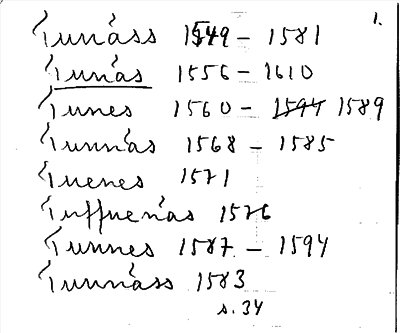 Gunäss 1549 – 1581 1.
Gunäs 1556 – 1610
Gunes 1560 – 1594 1589
Gunnäs 1568 – 1585
Guenes 1571
Guffuenäs 1576
Gunnes 1587 – 1594
Gunnäss 1583
s. 34